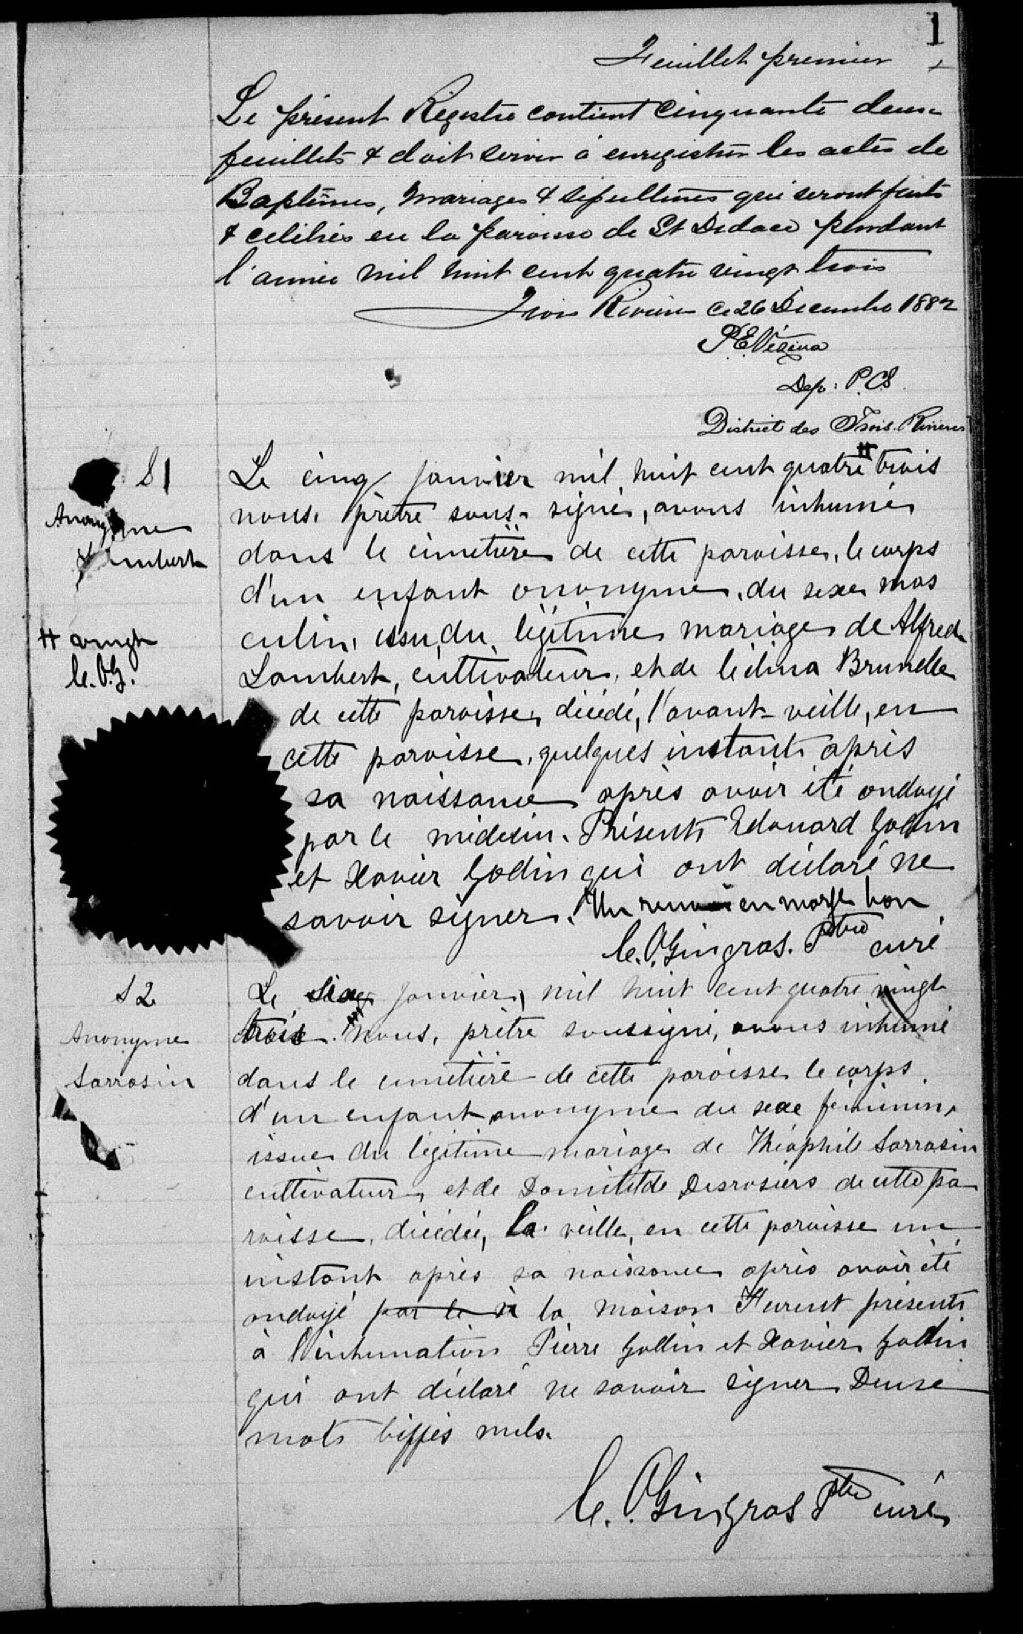 1
Feuillet premier
Le présent Registre contient cinquante deux
feuillets & doit servir à enregistrer les actes de
Baptêmes, Mariages & sépultures qui seront faits
& célébrés en la paroisse de St Didace pendant
l'année mil huit cent quatre vingt trois
Trois Rivières ce 26 Décembre 1882
P.E. Vézina
Dep. P.C.S.
District des Trois-Rivières
S1
Anonyme
Lambert
# vingt
C.O.G.
Le cinq janvier mil huit cent quatre # trois
nous, prêtre sous-signé, avons inhumé
dans le cimetière de cette paroisse, le corps
d'un enfant anonyme, du sexe mas
culin, issu du légitime mariage de Alfred
Lambert, cultivateur, et de Célina Brunelle
de cette paroisse, décédé, l'avant-veille, en
cette paroisse, quelques instants après
sa naissance après avoir été ondoyé
par le médecin. Présents Edouard Godin
et Xavier Godin qui ont déclaré ne
savoir signer. Un renvoi en marge bon
C.O. Gingras. Ptre curé
S2
Anonyme
Sarrasin
Le six janvier, mil huit cent quatre vingt
trois nous, prêtre soussigné, avons inhumé
dans le cimetière de cette paroisse le corps
d'un enfant anonyme du sexe féminin,
issue du légitime mariage de Théophile Sarrasin
cultivateur, et de Domitilde Desrosiers de cette pa
roisse, décédée, la veille, en cette paroisse un
instant après sa naissance après avoir été
ondoyé par le à la maison Furent présents
à l'inhumation Pierre Godin et Xavier Godin
qui ont déclaré ne savoir signer Deuxe
mots biffés nuls.
C.O. Gingras Ptre curé